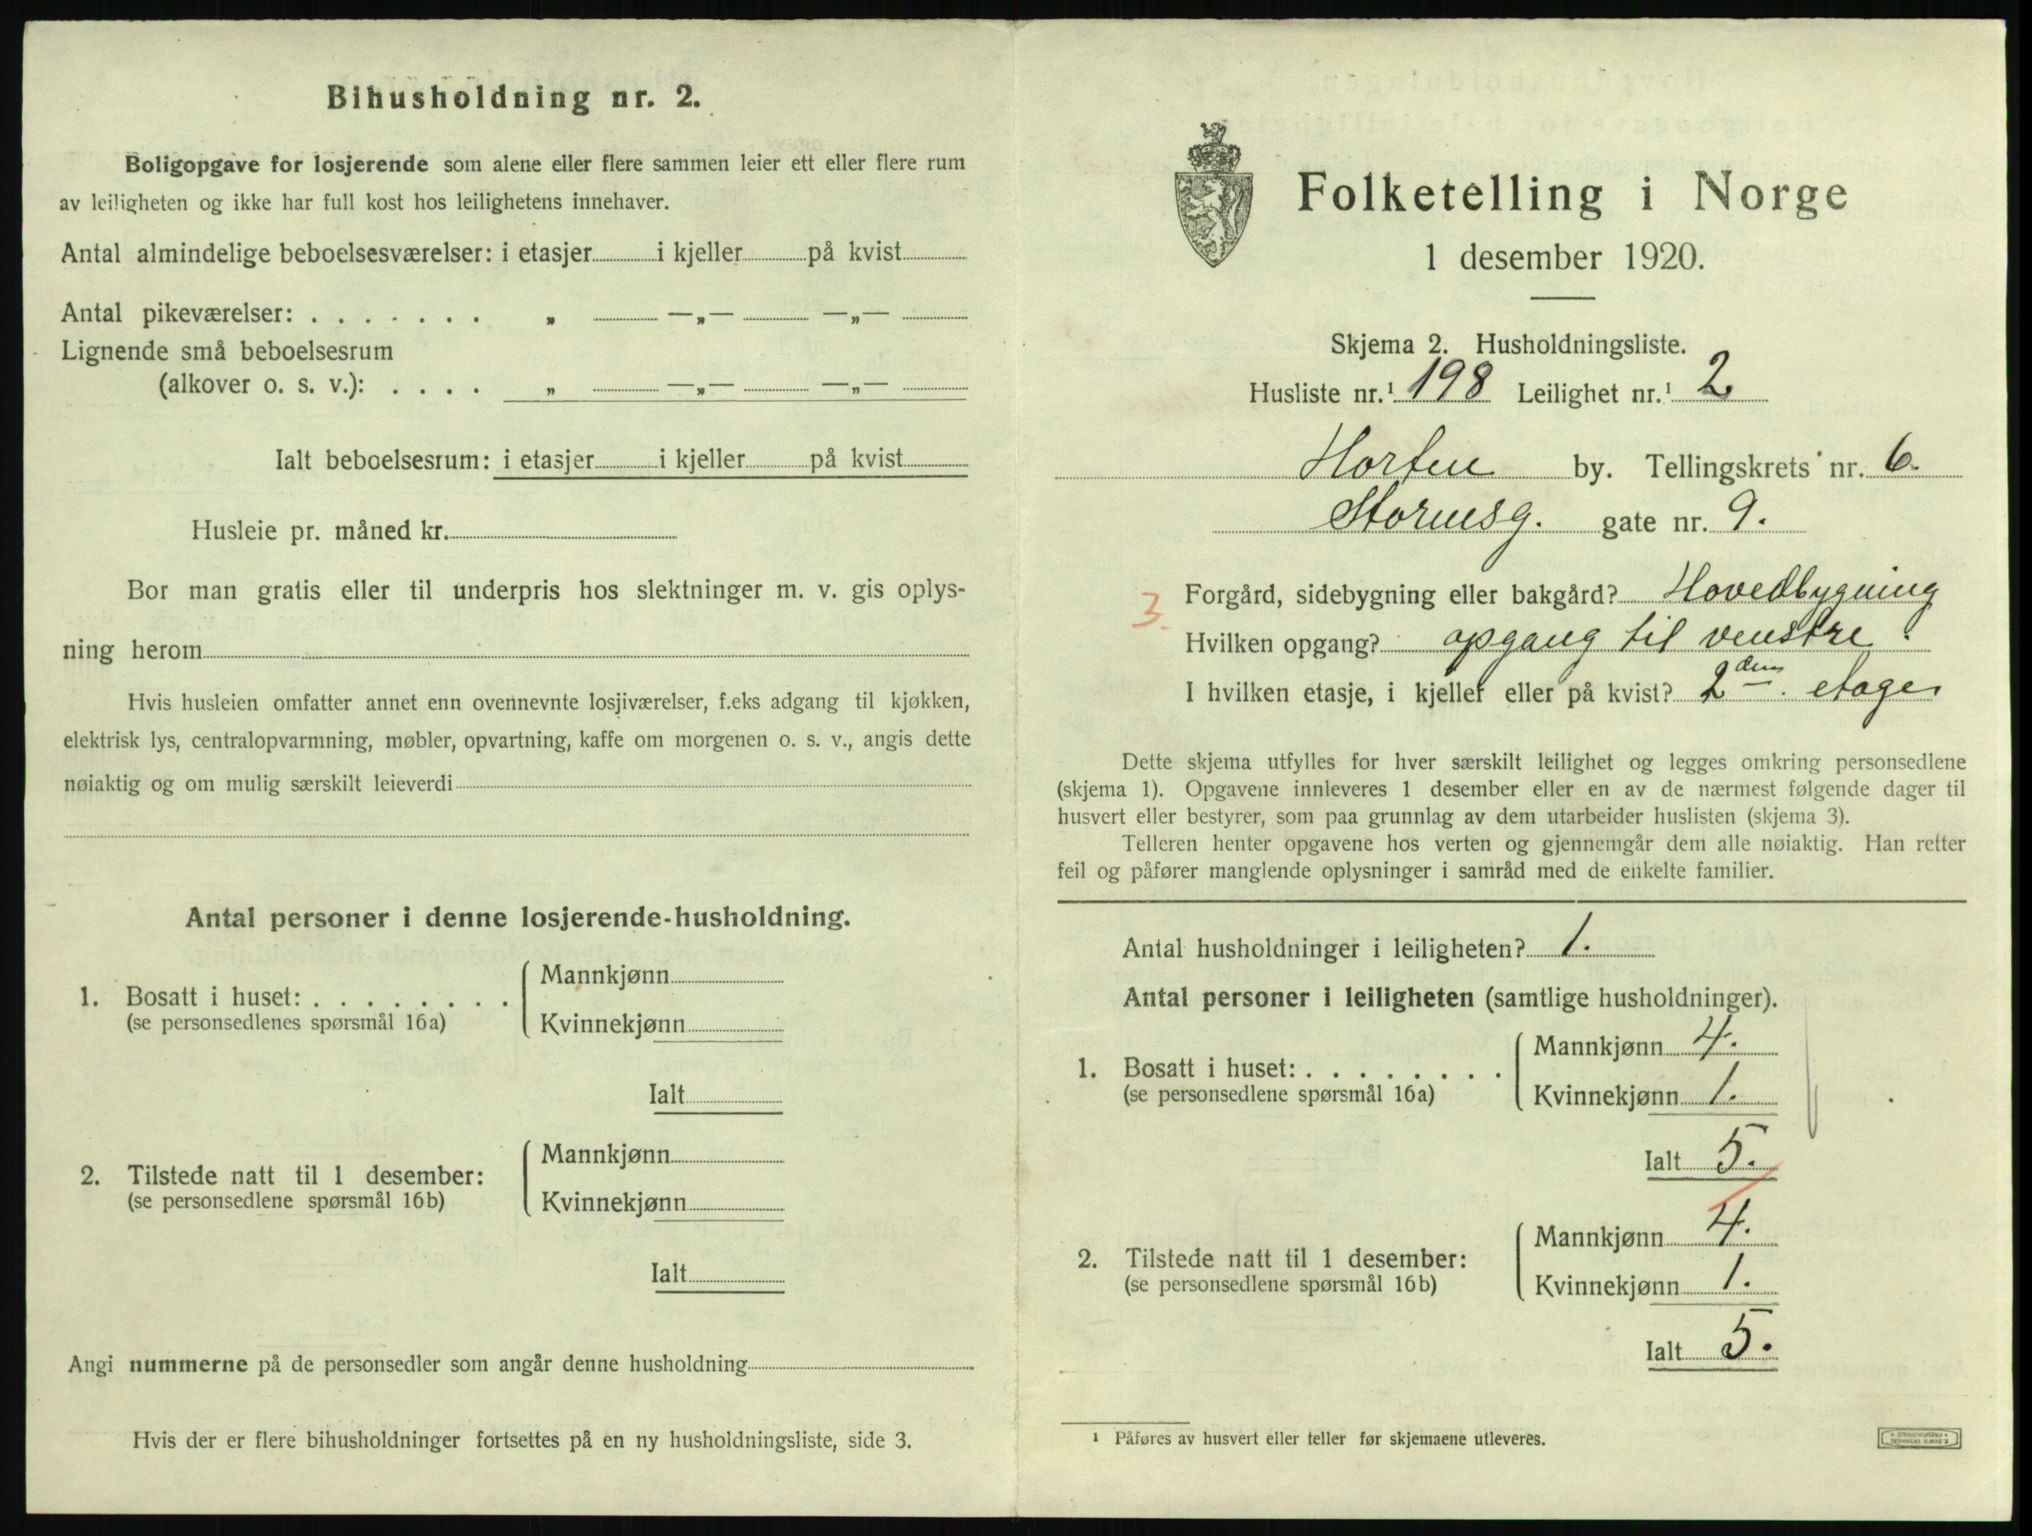 Bihusholdning nr. 2.
Boligopgave for losjerende som alene eller flere sammen leier ett eller flere rum
av leiligheten og ikke har full kost hos leilighetens innehaver.
Antal almindelige beboelsesværelser: i etasjer i kjeller på kvist
Antal pikeværelser: . . . . . . . „ —„— —„—
Lignende små beboelsesrum
(alkover o. s. v.): . . . . „ —„— —„—
Ialt beboelsesrum: i etasjer i kjeller på kvist
Husleie pr. måned kr.
Bor man gratis eller til underpris hos slektninger m. v. gis oplys-
ning herom
Hvis husleien omfatter annet enn ovennevnte losjiværelser, f.eks adgang til kjøkken,
elektrisk lys, centralopvarmning, møbler, opvartning, kaffe om morgenen o. s. v., angis dette
nøiaktig og om mulig særskilt leieverdi
Antal personer i denne losjerende-husholdning.
1. Bosatt i huset: . . . . . . . .
(se personsedlenes spørsmål 16a)
Mannkjønn
Kvinnekjønn
Ialt
2. Tilstede natt til 1 desember:
(se personsedlene spørsmål 16b)
Mannkjønn
Kvinnekjønn
Ialt
Angi nummerne på de personsedler som angår denne husholdning
Hvis der er flere bihusholdninger fortsettes på en ny husholdningsliste, side 3.
Folketelling i Norge
1 desember 1920.
Skjema 2. Husholdningsliste.
Husliste nr.¹ 198 Leilighet nr.¹ 2
Horten by. Tellingskrets nr. 6.
Stormsg. gate nr. 9.
Forgård, sidebygning eller bakgård? Hovedbygning
3.
Hvilken opgang? opgang til venstre.
I hvilken etasje, i kjeller eller på kvist? 2den. etage
Dette skjema utfylles for hver særskilt leilighet og legges omkring personsedlene
(skjema 1). Opgavene innleveres 1 desember eller en av de nærmest følgende dager til
husvert eller bestyrer, som paa grunnlag av dem utarbeider huslisten (skjema 3).
Telleren henter opgavene hos verten og gjennemgår dem alle nøiaktig. Han retter
feil og påfører manglende oplysninger i samråd med de enkelte familier.
Antal husholdninger i leiligheten? 1.
Antal personer i leiligheten (samtlige husholdninger).
1. Bosatt i huset: . . . . . . . .
(se personsedlene spørsmål 16a)
Mannkjønn 4.
Kvinnekjønn 1.
Ialt 5.
2. Tilstede natt til 1 desember:
(se personsedlene spørsmål 16b)
Mannkjønn 4.
Kvinnekjønn 1.
Ialt 5.
¹ Påføres av husvert eller teller før skjemaene utleveres.